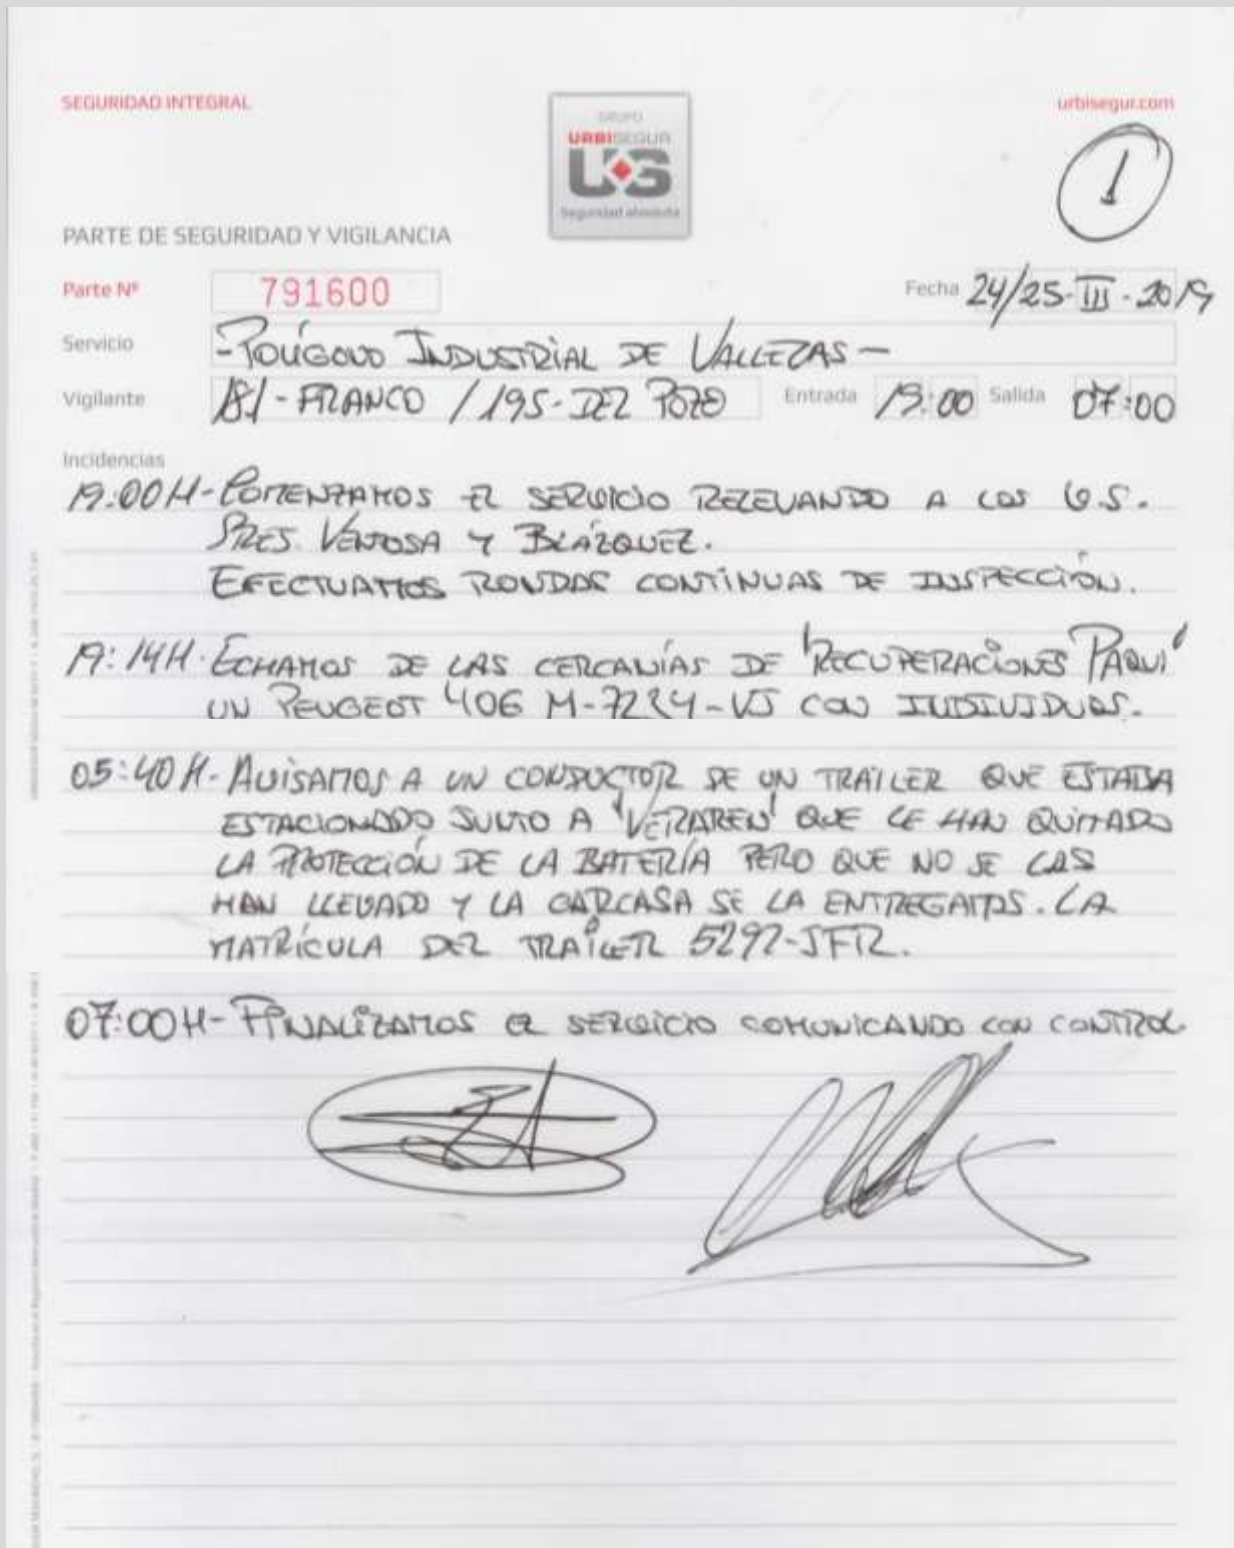 SEGURIDAD INTEGRAL
urbisegur.com
GRUPO
URBISEGUR
UGS
Seguridad absoluta
1
PARTE DE SEGURIDAD Y VIGILANCIA
Parte Nº 791600 Fecha 24/25-III-2019
Servicio -POLÍGONO INDUSTRIAL DE VALLECAS-
Vigilante 181-FRANCO / 195-DEL POZO Entrada 19:00 Salida 07:00
Incidencias
19:00H-COMENZAMOS EL SERVICIO RELEVANDO A LOS V.S.
SRES. VENTOSA Y BLÁZQUEZ.
EFECTUAMOS RONDAS CONTINUAS DE INSPECCIÓN.
19:14H-ECHAMOS DE LAS CERCANÍAS DE 'RECUPERACIONES PAQUI'
UN PEUGEOT 406 CON INDIVIDUOS.
05:40H-AVISAMOS A UN CONDUCTOR DE UN TRAILER QUE ESTABA
ESTACIONADO JUNTO A QUE LE HAN QUITADO
LA PROTECCIÓN DE LA BATERÍA PERO QUE NO SE LAS
HAN LLEVADO Y LA CARCASA SE LA ENTREGAMOS. LA
MATRÍCULA DEL TRAILER 5292-JFR.
07:00H-FINALIZAMOS EL SERVICIO COMUNICANDO CON CONTROL.